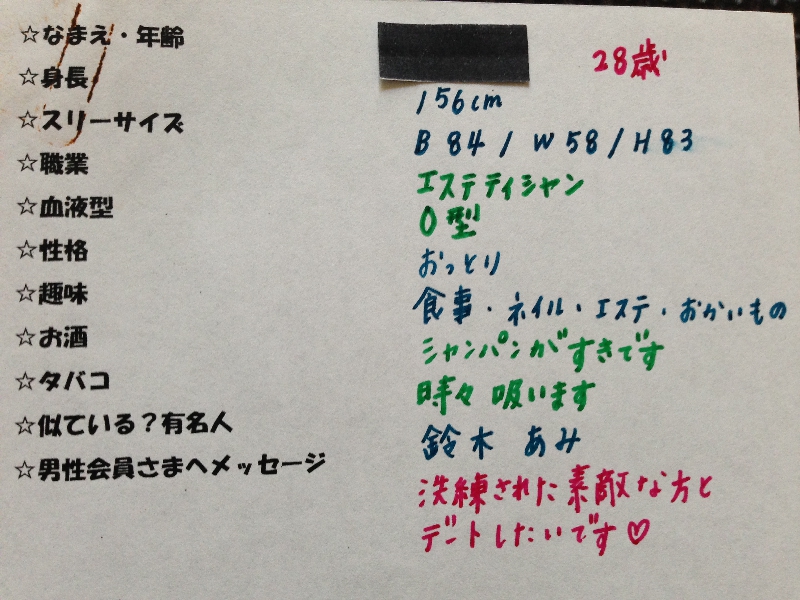 ☆なまえ・年齢 28歳
☆身長 156cm
☆スリーサイズ B 84 / W 58 / H 83
☆職業 エステティシャン
☆血液型 O型
☆性格 おっとり
☆趣味 食事・ネイル・エステ・おかいもの
☆お酒 シャンパンがすきです
☆タバコ 時々 吸います
☆似ている?有名人 鈴木 あみ
☆男性会員さまへメッセージ 洗練された素敵な方と
デートしたいです♡